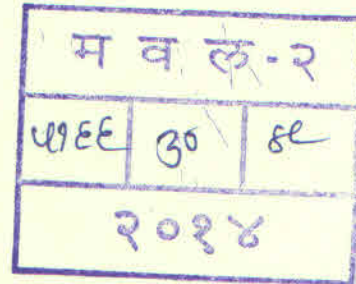 म व ल - २
५१६६ ३० ४९
२०१४